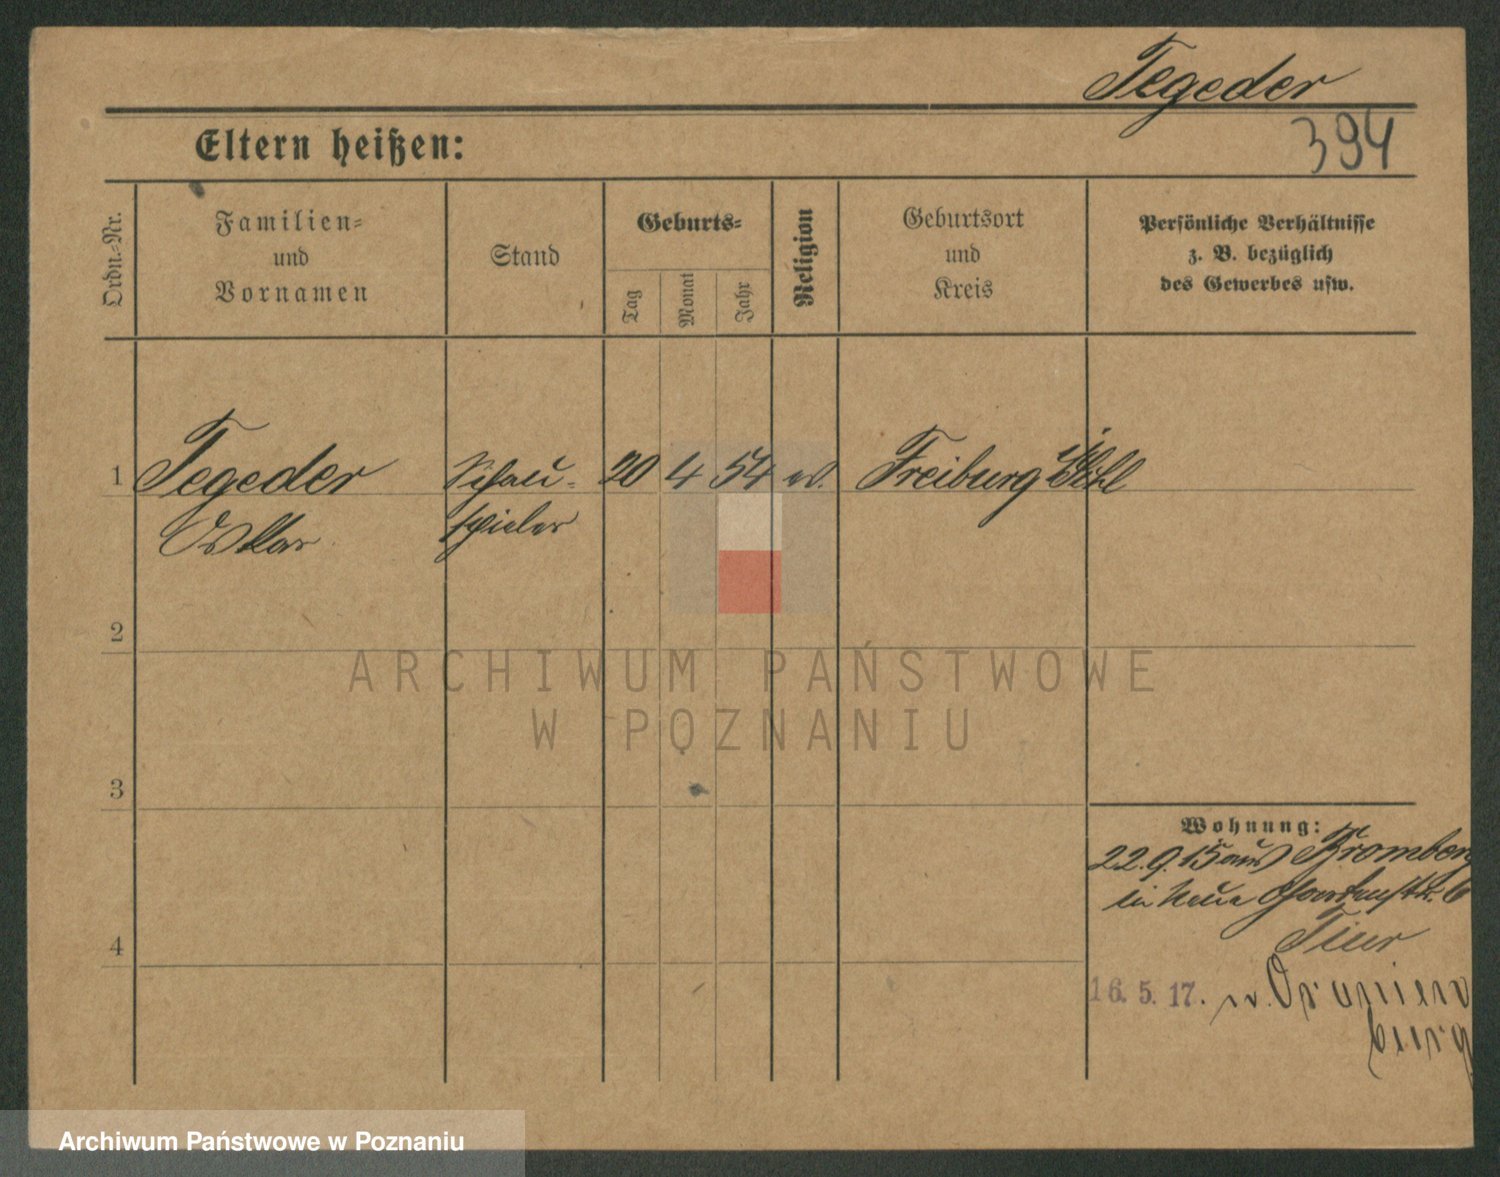 Tegeder
394
Eltern heißen:
Ordn.-Nr.
Familien-
und
Vornamen
Stand
Geburts-
Tag
Monat
Jahr
Religion
Geburtsort
und
Kreis
Persönliche Verhältnisse
z. B. bezüglich
des Gewerbes usw.
1 Tegeder Schau- 20 4 54 ev. Freiburg
Oskar spieler
2
ARCHIWUM PAŃSTWOWE
W POZNANIU
3
Wohnung:
22.9.15 aus Bromberg
in Neue Gartenstr. 6
4
16. 5. 17. n. Oranien
burg
Archiwum Państwowe w Poznaniu